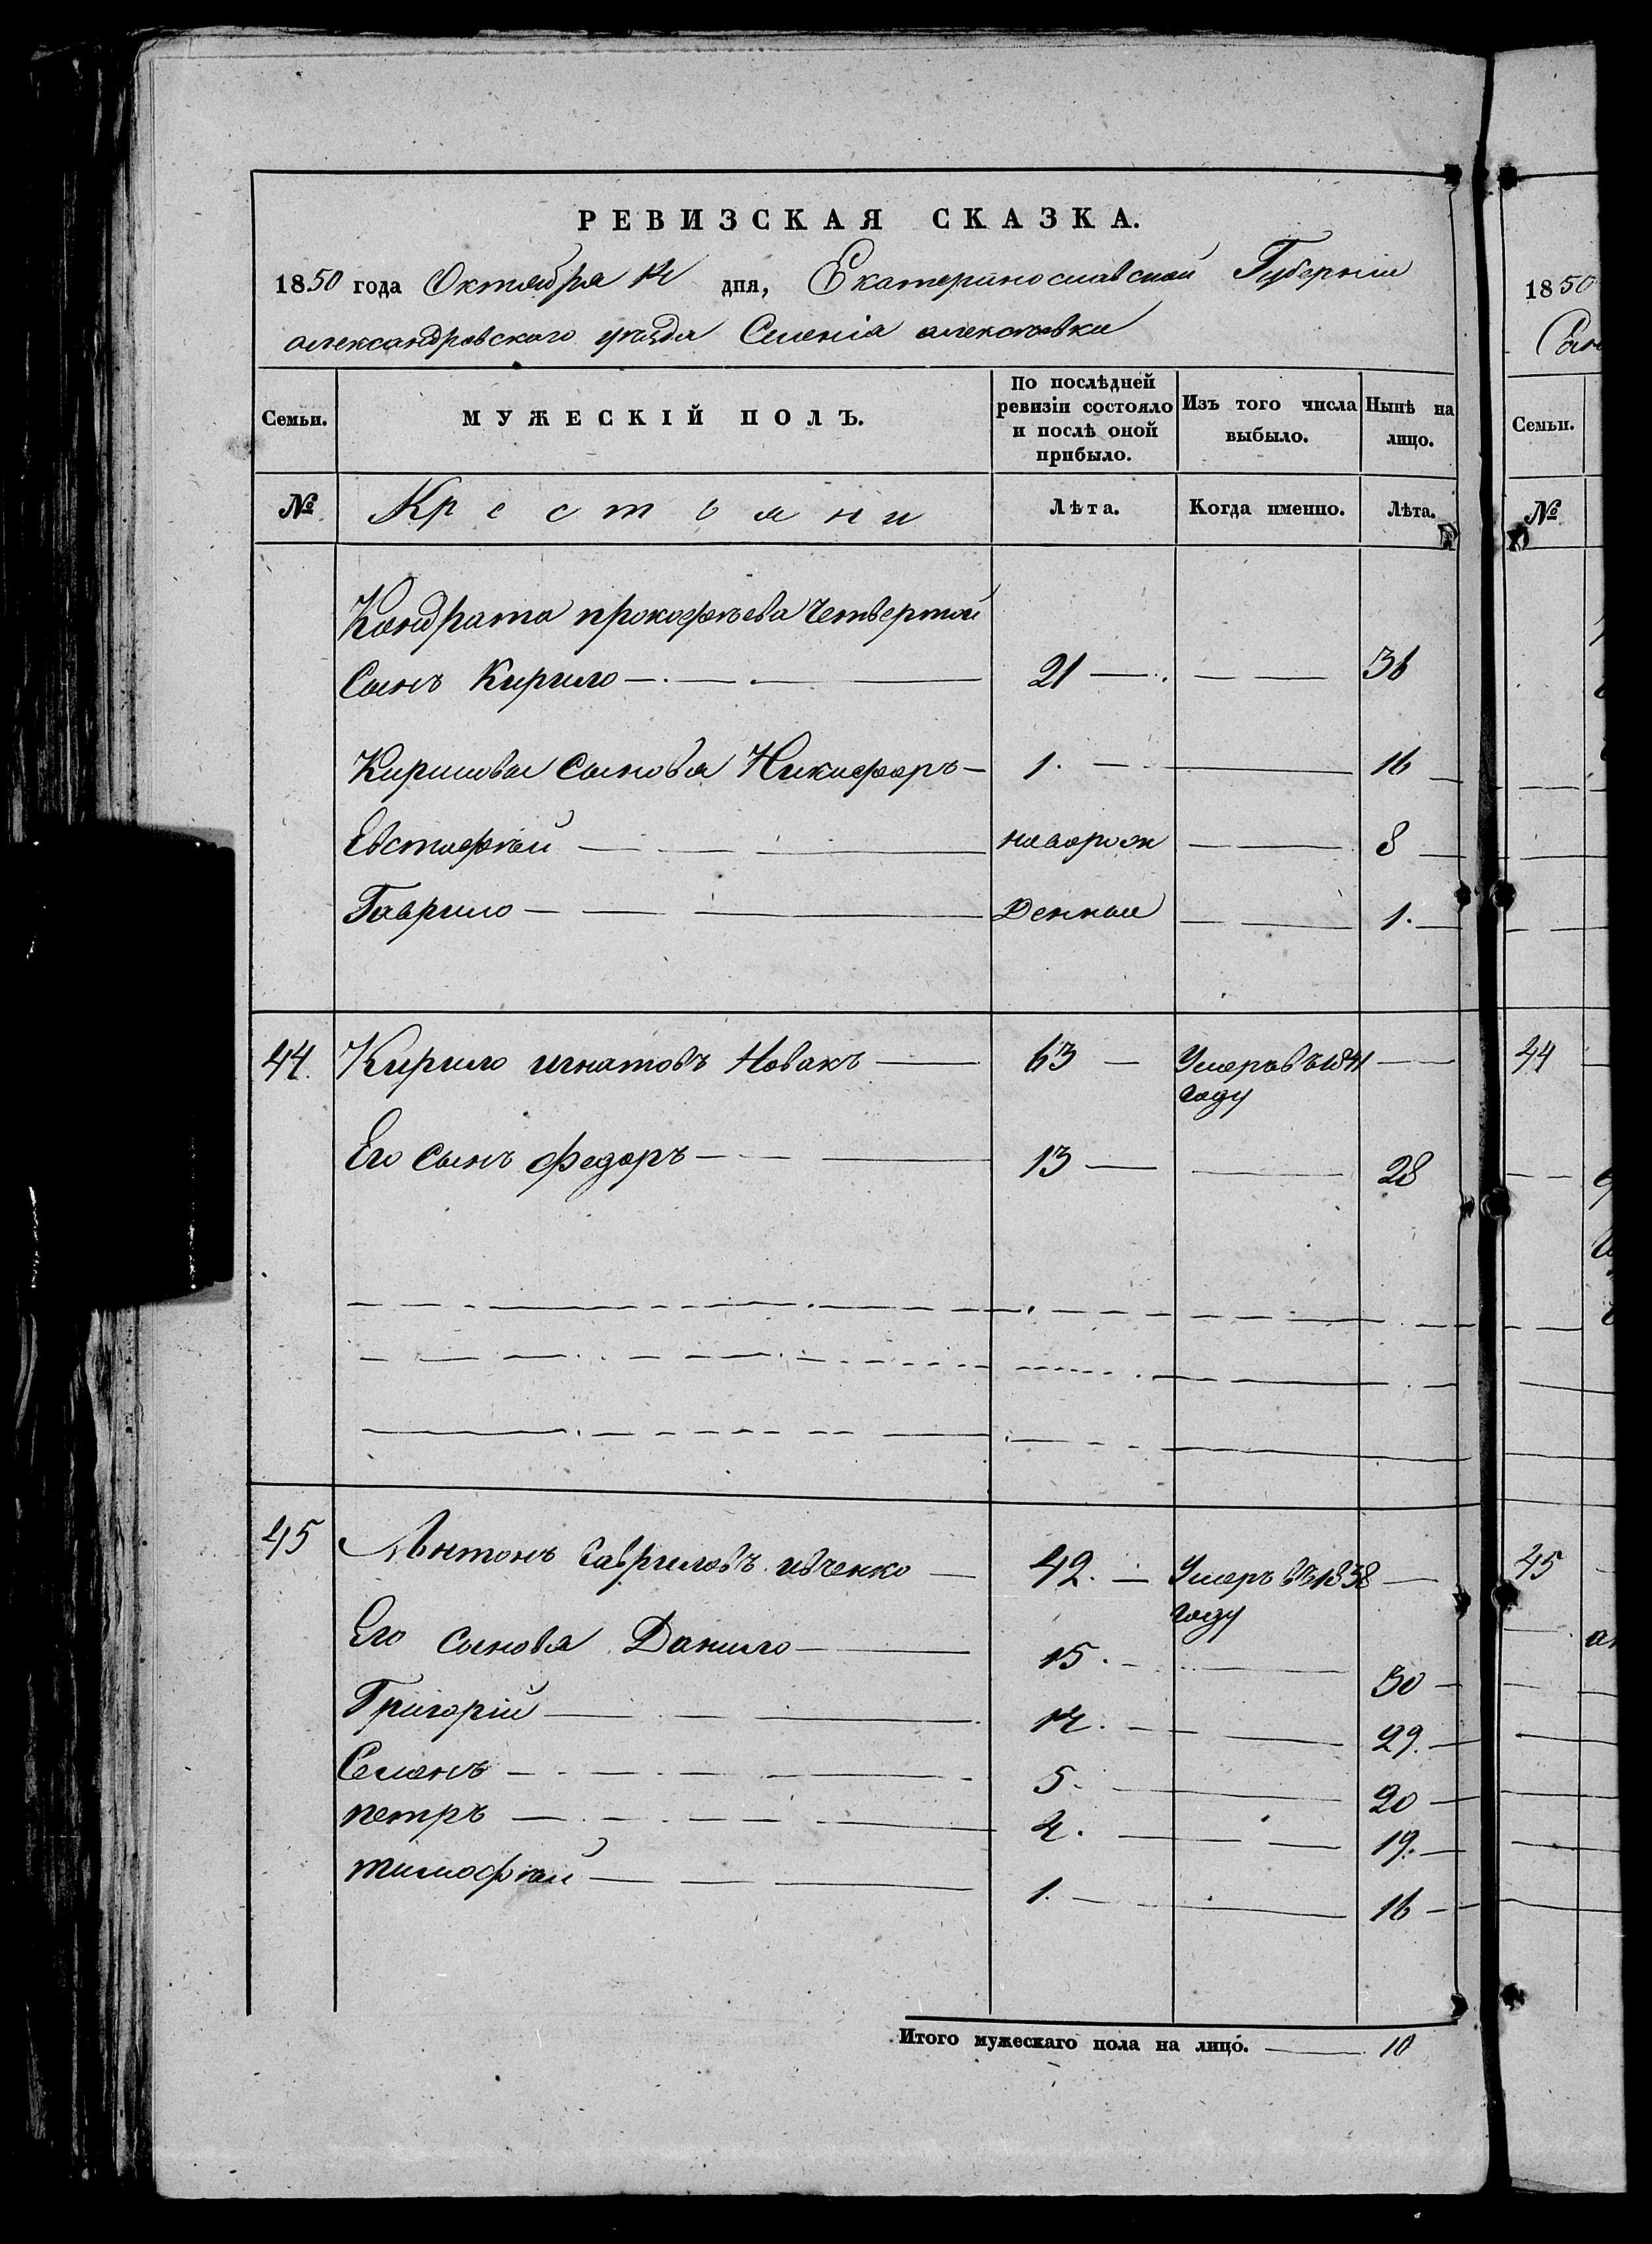 РЕВИЗСКАЯ СКАЗКА.
1850 года Октября 14 дня, Екатеринославской Губерніи
александровского уѣзда Селенія алексѣевки
Семьи. МУЖЕСКІЙ ПОЛЪ. По послѣдней ревизіи состояло и послѣ оной прибыло. Изъ того числа выбыло. Нынѣ на лицо.
№ Крестьяни Лѣта. Когда именно. Лѣта.
Кондрата прокофьева Четвертой
Сынъ Кирило 21 36
Кириловы Сыновья Никифоръ 1. 16
Евстафѣй новорож 8
Гаврило денные 1.
44. Кирило игнатовъ Новакъ 63 Умеръ въ 1841
году
Его Сынъ Федоръ 13 28
45 Антонъ Гавриловъ ивченко 42. Умеръ въ 1838
году
Его Сыновья Данило 15. 30
Григорій 14. 29.
Семенъ 5. 20
петръ 4. 19.
тимофѣй 1. 16
Итого мужескаго пола на лицо. 10
1850
Семьи.
№
44
45